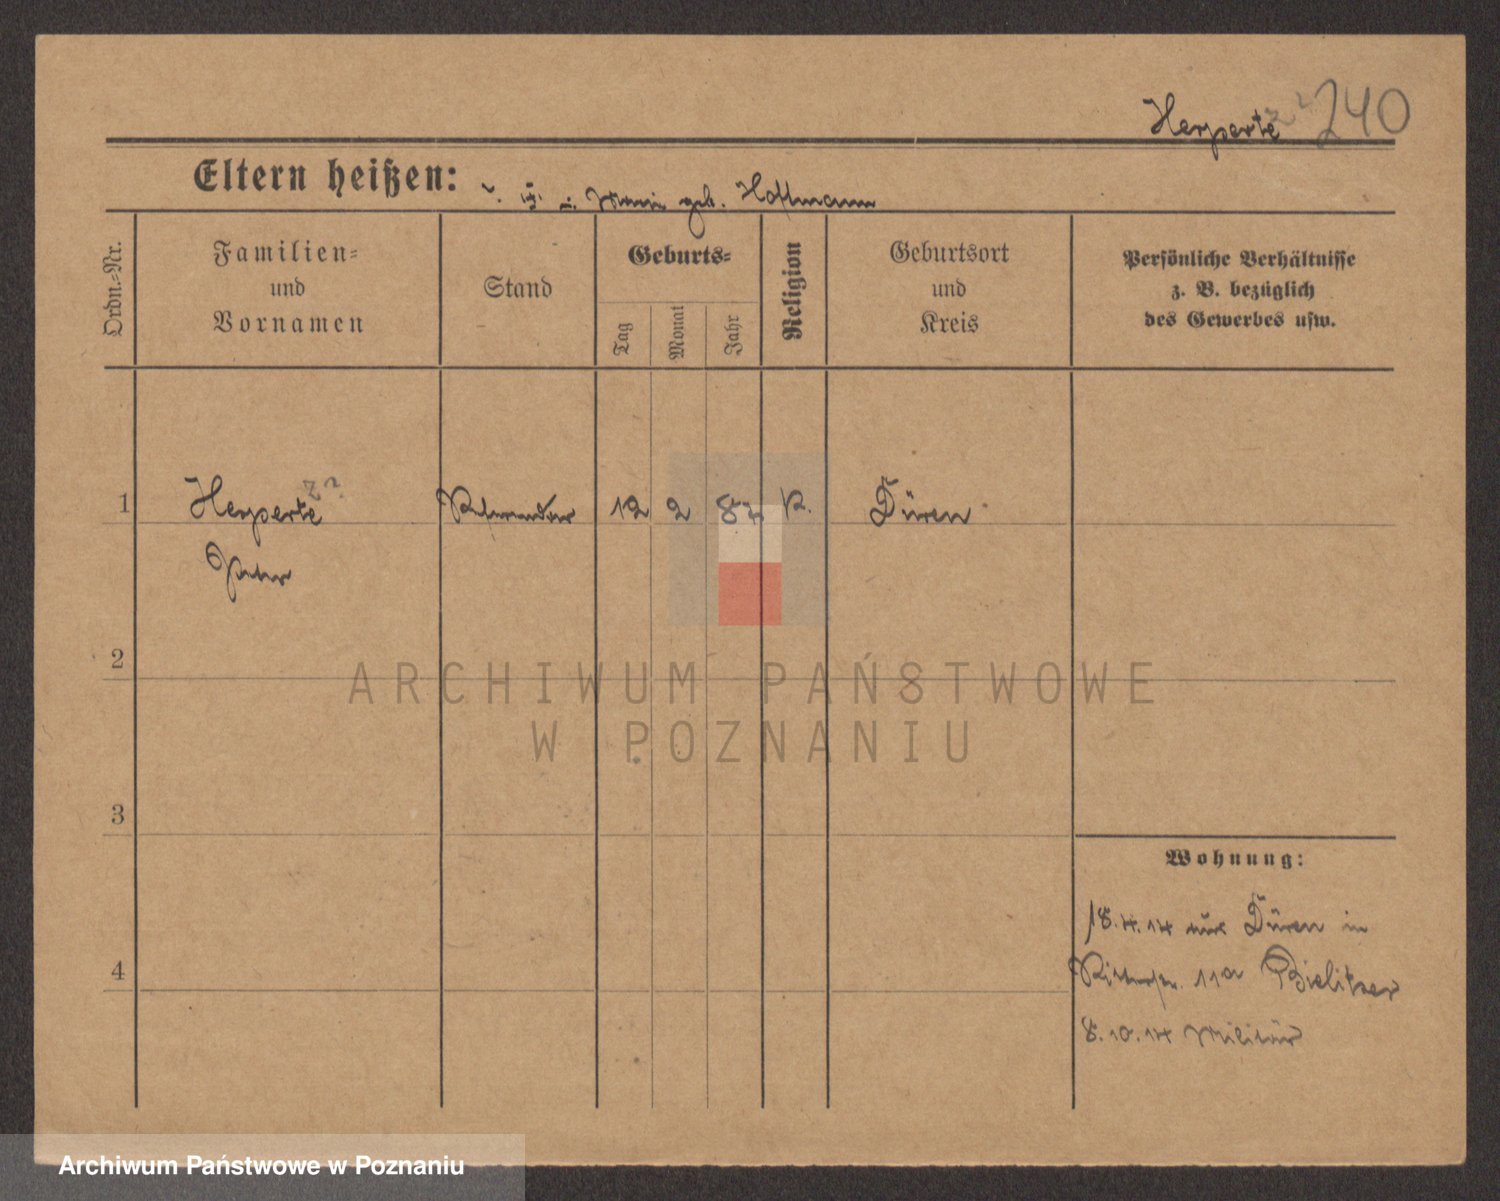 Herperts 240
Eltern heißen:
u. Maria geb. Hoffmann
Ordn.-Nr.
Familien-
und
Vornamen
Stand
Geburts-
Tag
Monat
Jahr
Religion
Geburtsort
und
Kreis
Persönliche Verhältnisse
z. B. bezüglich
des Gewerbes usw.
1 Herperts Referendar 12 2 87 K. Düren
Peter
2
ARCHIWUM PAŃSTWOWE
W POZNANIU
3
Wohnung:
18.4.14 aus Düren in
Ritterstr. 11a
4
8.10.14 Militär
Archiwum Państwowe w Poznaniu